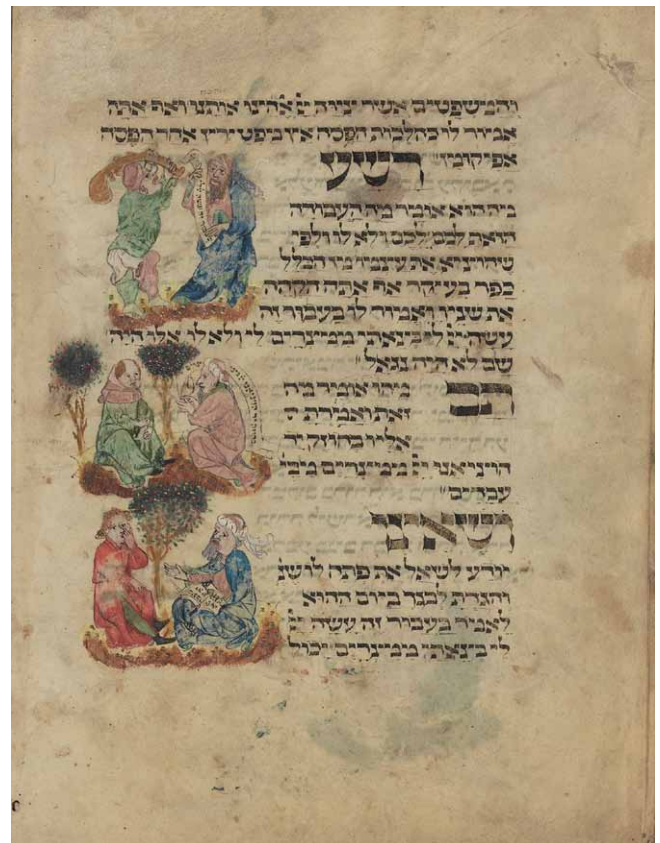 והמשפטים אשר ציוה יי אלהינו אותנו ואף אתה
אמור לו כהלכות הפסח אין מפטירין אחר הפסח
אפיקומן
רשע
מה הוא אומר מה העבודה
הזאת לכם לכם ולא לו ולפי
שהוציא את עצמו מן הכלל
כפר בעיקר אף אתה הקהה
את שניו ואמור לו בעבור זה
עשה יי לי בצאתי ממצרים לי ולא לו אלו היה
שם לא היה נגאל
תם
מהו אומר מה
זאת ואמרת
אליו בחוזק יד
הוציאנו יי ממצרים מבית
עבדים
ושאינו
יודע לשאל את פתח לו שנ
והגדת לבנך ביום ההוא
לאמר בעבור זה עשה יי
לי בצאתי ממצרים יכול